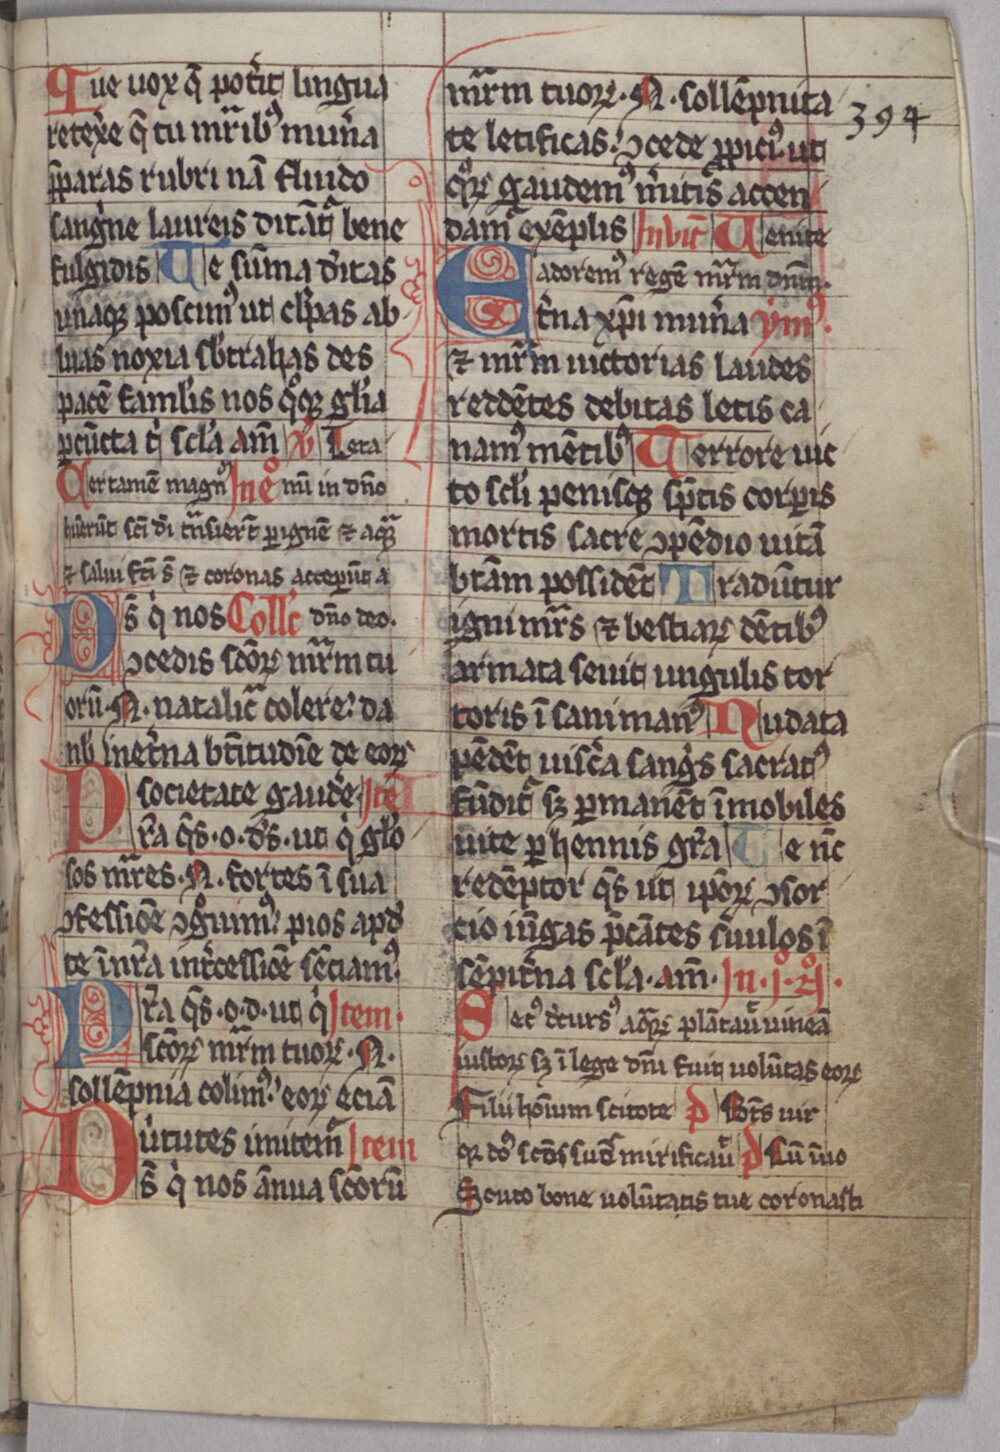 Que uox q̄ pot̓it lingua
retex̓e q̄ tu mr̄ib⁹ mun̓a
p̄paras rubri nā fluido
sangⁱne laureis ditāt᷑ bene
fulgidis Te sūma d̓itas
unāqꝫ poscim⁹ ut cl̓pas ab
luas noxia sb̓trahas des
pacē famlīs nos qͦqꝫ gl̄ia
p̲ cūcta t̓ scl̄a am̄ v̓ Leta
Certamē magn̄ In eͦ mī in dn̄o
hūerūt sc̄i di trāsierūt p̲ ignē ⁊ aqᷓ
⁊ salui fc̄i s̄ ⁊ coronas accep̲ūt a
Ds̄ qⁱ nos Coll̓c dn̄o deo.
ꝯcedis sc̄oꝝ mr̄m tu
orū. N. natalic̄ colere: da
nb̓ in et̓na bt̄itudīe de eoꝝ
societate gaud̓e. Itē
Pr̄a qs̄. o. ds̄. ut qⁱ gl̓o
sos mr̄es. N. fortes ī sua
ꝯfessiōe ꝯgͦuim⁹: pios apd̓
te ī nr̄a int̓cessiōe sēciam⁹.
Pr̄a qs̄. o. d. ut qⁱ Item.
sc̄oꝝ mr̄m tuoꝝ. N.
sollēpnia colim⁹: eoꝝ eciā
uⁱtutes imitem᷑ Item
Ds̄ qⁱ nos ānua sc̄orū
mr̄m tuoꝝ. N. sollēpnita
te letificas: ꝯcede ꝓpici⁹. ut
qͦꝝ gaudem⁹ m̓itis accen
dam᷑ exēplis Inbit̄ Uenite
adorem⁹ regē mr̄m dn̄m.
Et̓na xp̄i mun̓a ym⁹.
⁊ mr̄m uictorias laudes
reddētes debitas letis ca
nam⁹ mētib⁹ Terrore uic
to scl̓i penisqꝫ sp̄tis corp̲is
mortis sacre ꝯpēdio uitā
btām possidēt Tradūtur
igni mr̄s ⁊ bestiaꝝ dētib⁹
armata seuit ungulis tor
toris ī sani man⁹ Nudata
pēdēt uisc̓a sangⁱs sacrat⁹
fūdit᷑ sꝫ p̲manēt īmobiles
uite p̲hennis gr̄a Te nc̄
redēptor qs̄ ut ip̄oꝝ ꝯsor
cio iūgas p̄cātes s̓uulos ī
sēpit̓na scl̄a. am̄. In. j. ꝙ.
Sec⁹ dcurs⁹ aqᷓꝝ plātauᷓ uineā
iustoꝝ sꝫ ī lege dn̄i fuit volūtas eoꝝ
Filii hōīum scitote p̄ Bt̄s uir
qꝛ dͦs sc̄os suos̄ mirificauᷓ p̄ Cū īuo
Scuto bone uolūtatis tue coronasti
394